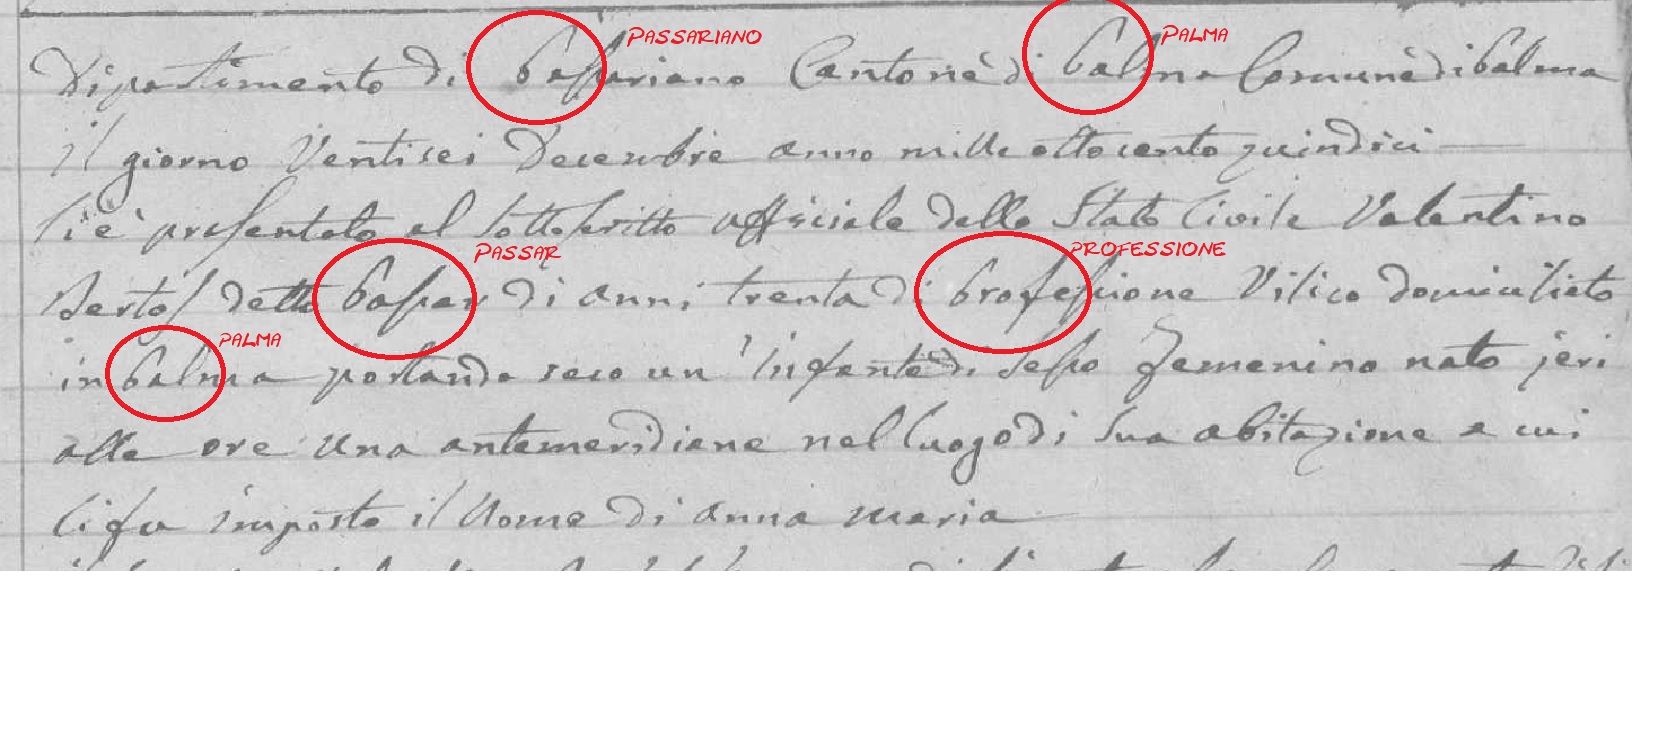 PASSARIANO PALMA
Dipartimento di Passariano Cantone di Palma Comune di Palma
il giorno Ventisei Decembre anno mille ottocento quindici
si è presentato al sottoscritto officiale dello Stato Civile Valentino
PASSAR PROFESSIONE
Bertos detto Passar di anni trenta di Professione Vilico domiciliato
PALMA
in Palma portando seco un' Infante di sesso femenino nato jeri
alle ore una antemeridiane nel luogo di sua abitazione a cui
si fu imposto il Nome di anna maria